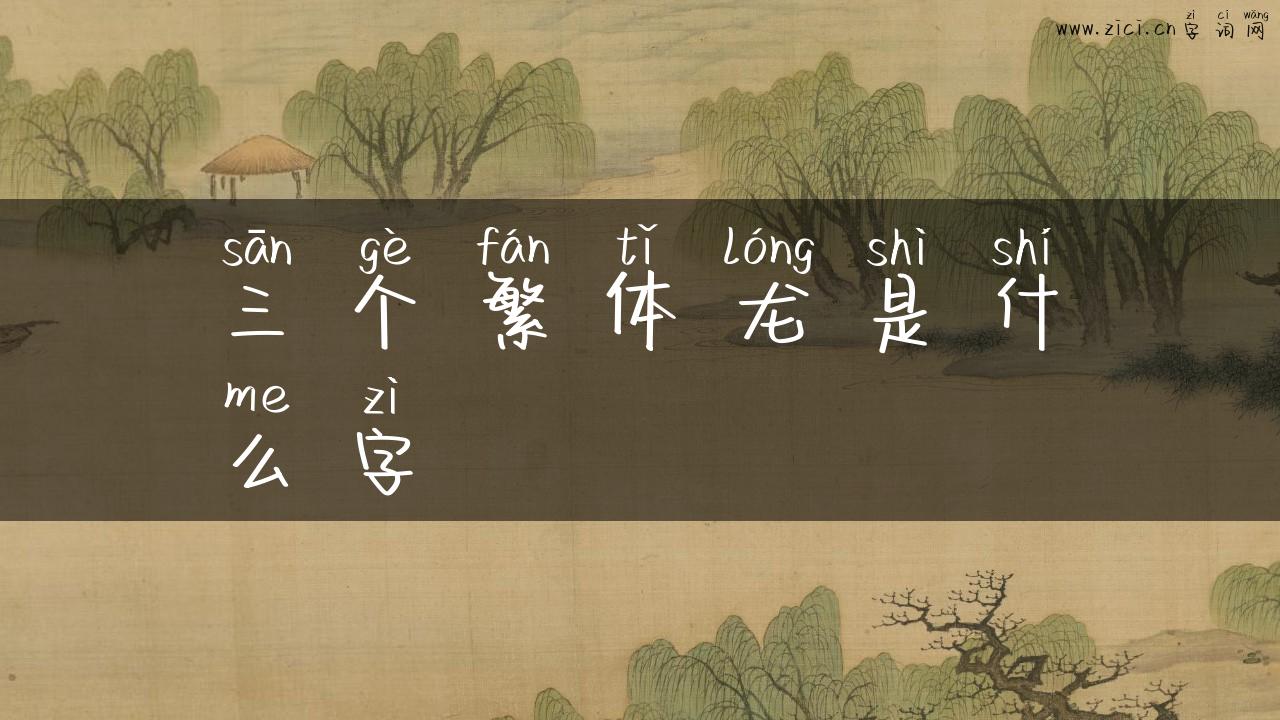 zì cí wǎng
www.zici.cn 字 词 网
sān gè fán tǐ lóng shì shí
三 个 繁 体 龙 是 什
me zì
么 字